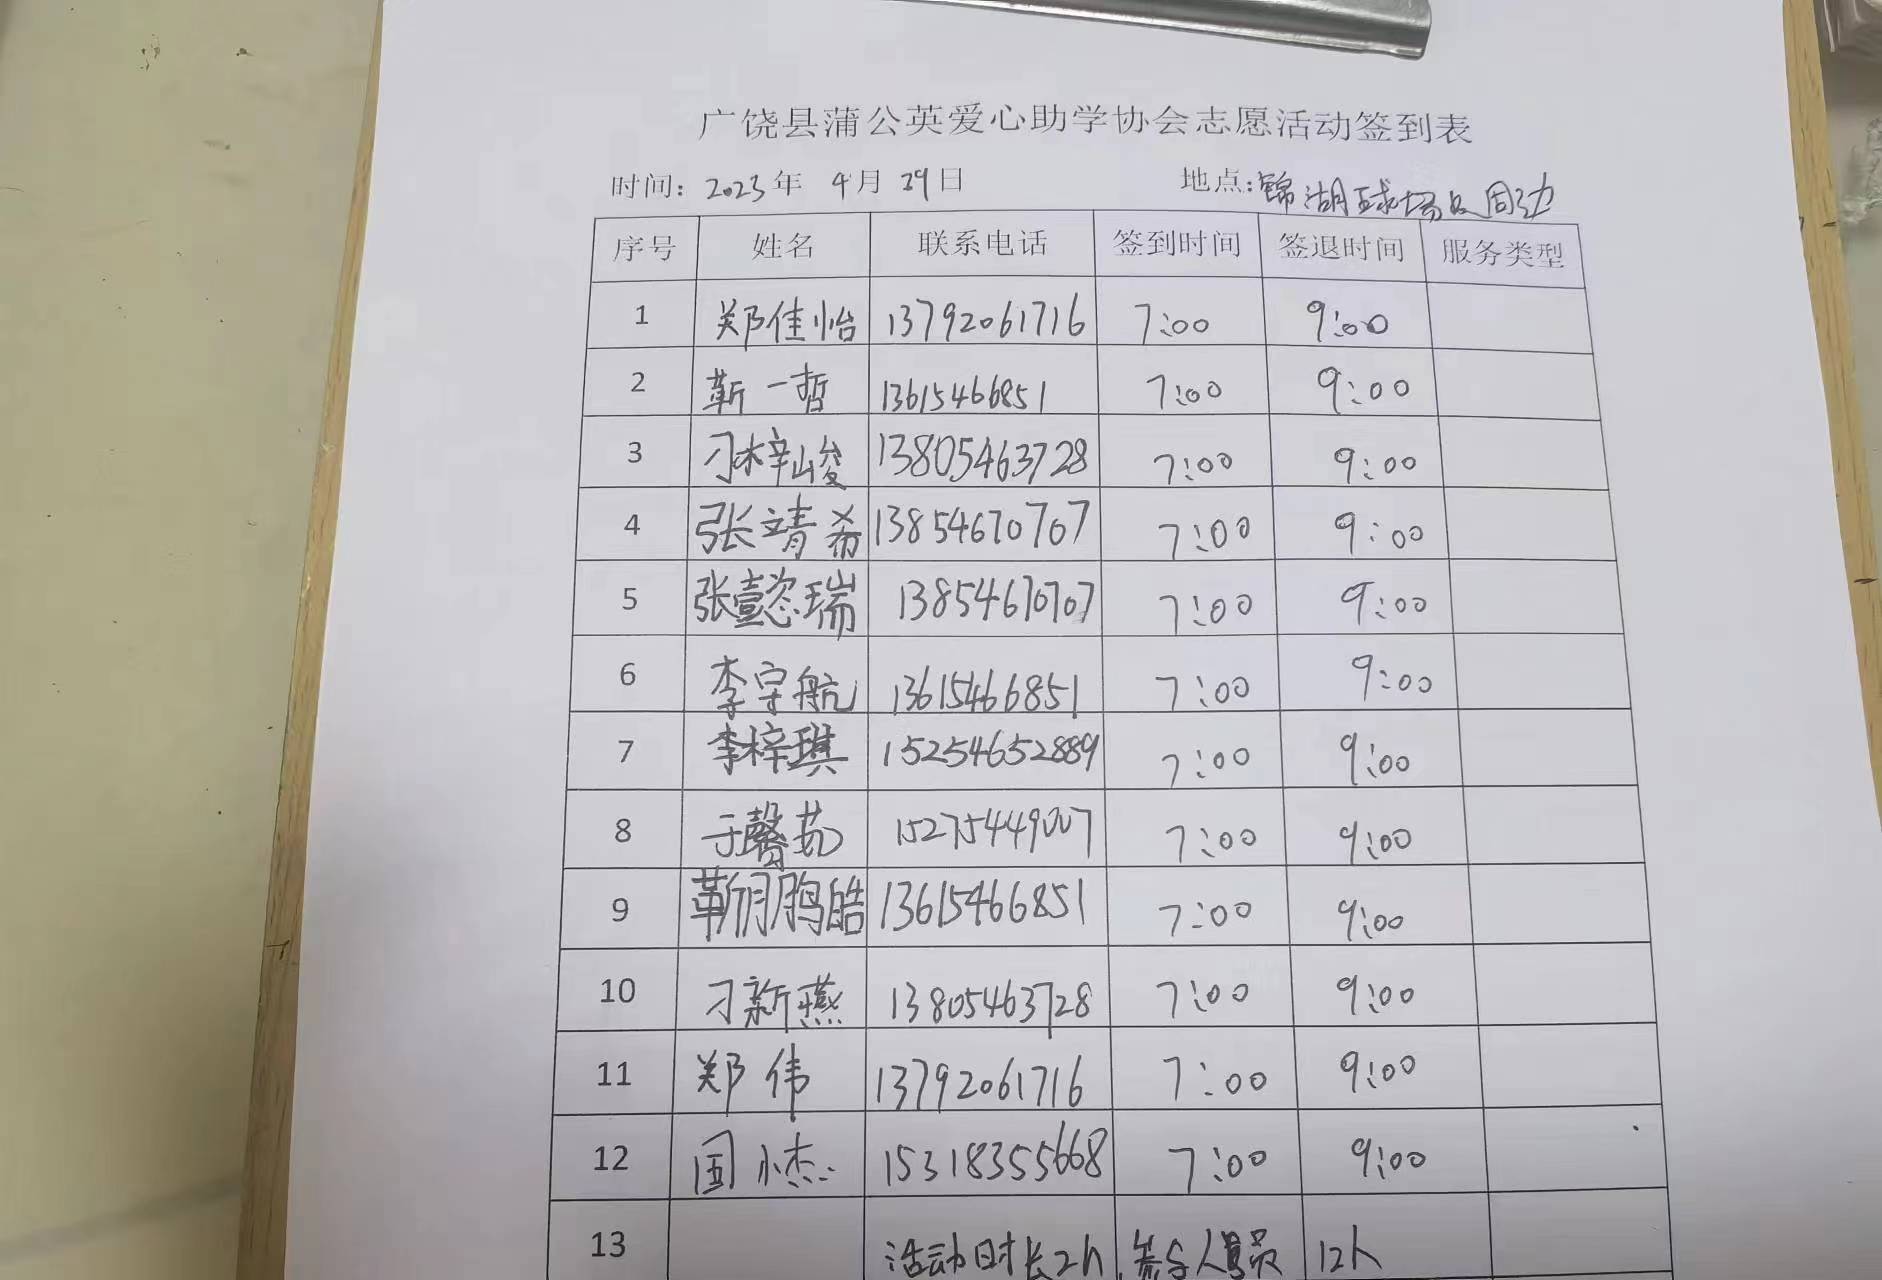 广饶县蒲公英爱心助学协会志愿活动签到表
时间: 2023年 4月 29日 地点:锦湖球场及周边
序号 姓名 联系电话 签到时间 签退时间 服务类型
1 郑佳怡 13792061716 7:00 9:00
2 靳一哲 13615466851 7:00 9:00
3 刁梓峻 13805463728 7:00 9:00
4 张靖希 13854670707 7:00 9:00
5 张懿瑞 13854670707 7:00 9:00
6 李宇航 13615466851 7:00 9:00
7 李梓琪 15254652889 7:00 9:00
8 于馨茹 15275449007 7:00 9:00
9 靳鹏皓 13615466851 7:00 9:00
10 刁新燕 13805463728 7:00 9:00
11 郑伟 13792061716 7:00 9:00
12 国小杰 15318355668 7:00 9:00
13 活动时长2h 参与人员 12人